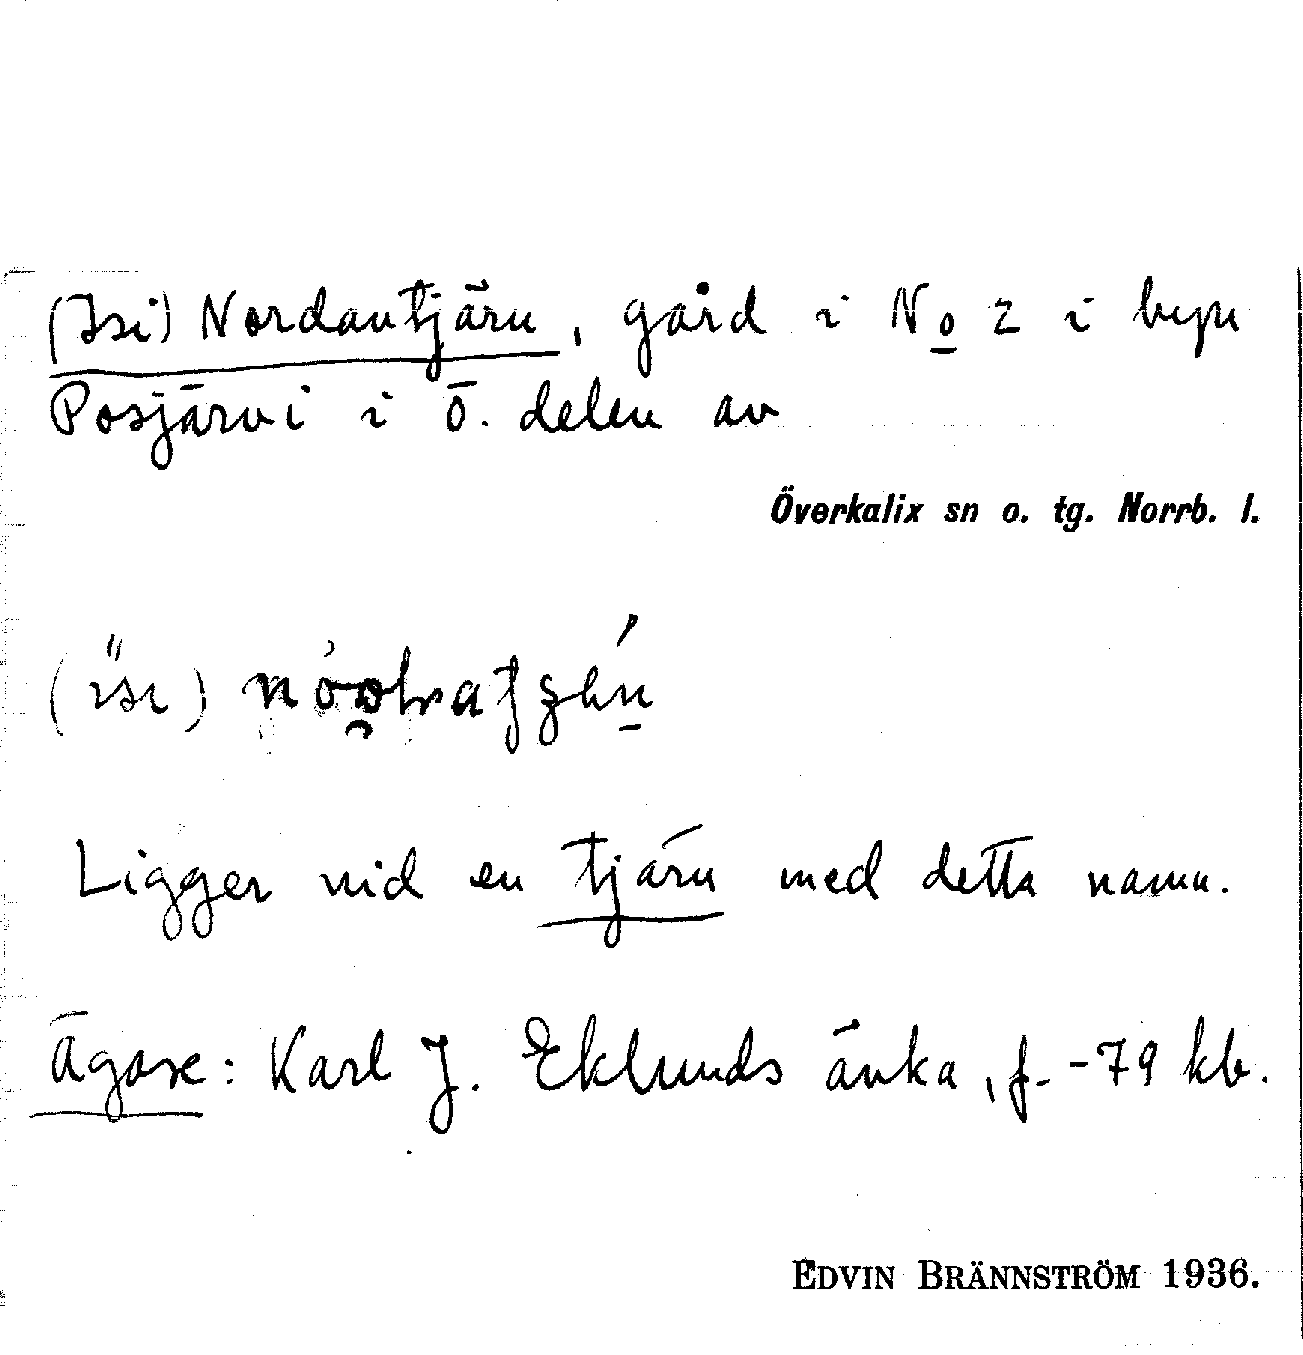 (Isi) Nordantjärn, gård i No 2 i byn
Posjärvi i ö. delen av
Överkalix sn o. tg. Norrb. l.
Ligger vid en tjärn med detta namn.
Ägare: Karl J. Eklunds änka, f. -79 kb.
EDVIN BRÄNNSTRÖM 1936.